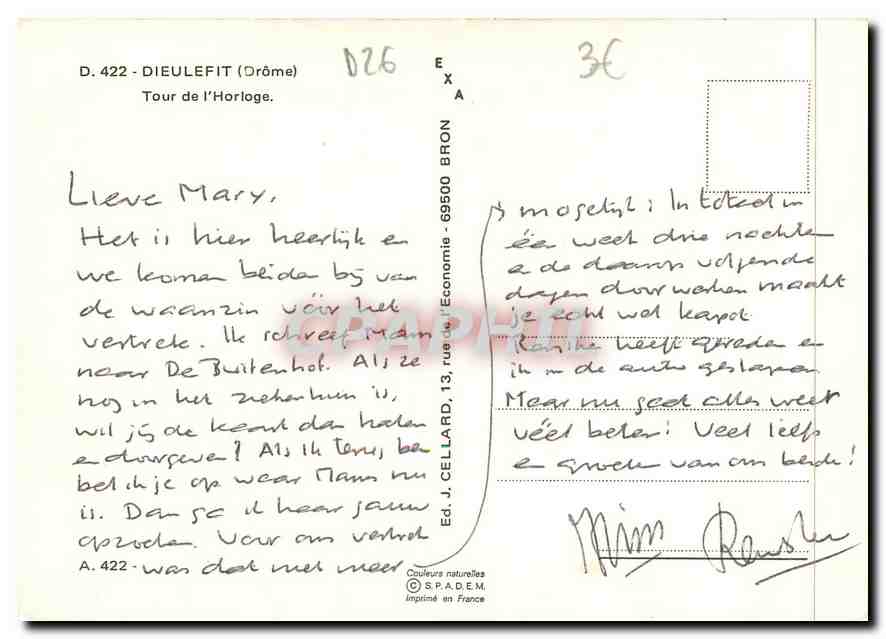 D. 422 - DIEULEFIT (Drôme)
Tour de l'Horloge.
D26
3€
EXA
Lieve Mary,
Het is hier heerlijk en
we komen beiden bij van
de waanzin vóór het
vertrek. Ik schreef Mam
naar De Buitenhof. Als ze
nog in het ziekenhuis is,
wil jij de kaart dan halen
en doorgeven? Als ik terug ben
bel ik je op waar Mam nu
is. Dan ga ik haar gauw
opzoeken. Voor ons vertrek
was dat niet meer
A. 422 -
Ed. J. CELLARD, 13, rue de l'Economie - 69500 BRON
Couleurs naturelles
© S.P.A.D.E.M.
Imprimé en France
mogelijk: In totaal in
één week drie nachten
en de daarop volgende
dagen doorwerken maakt
je echt wel kapot.
heeft gereden en
ik in de auto geslapen.
Maar nu gaat alles weer
véél beter! Veel liefs
en groeten van ons beide!
Wim
CPAPHIL